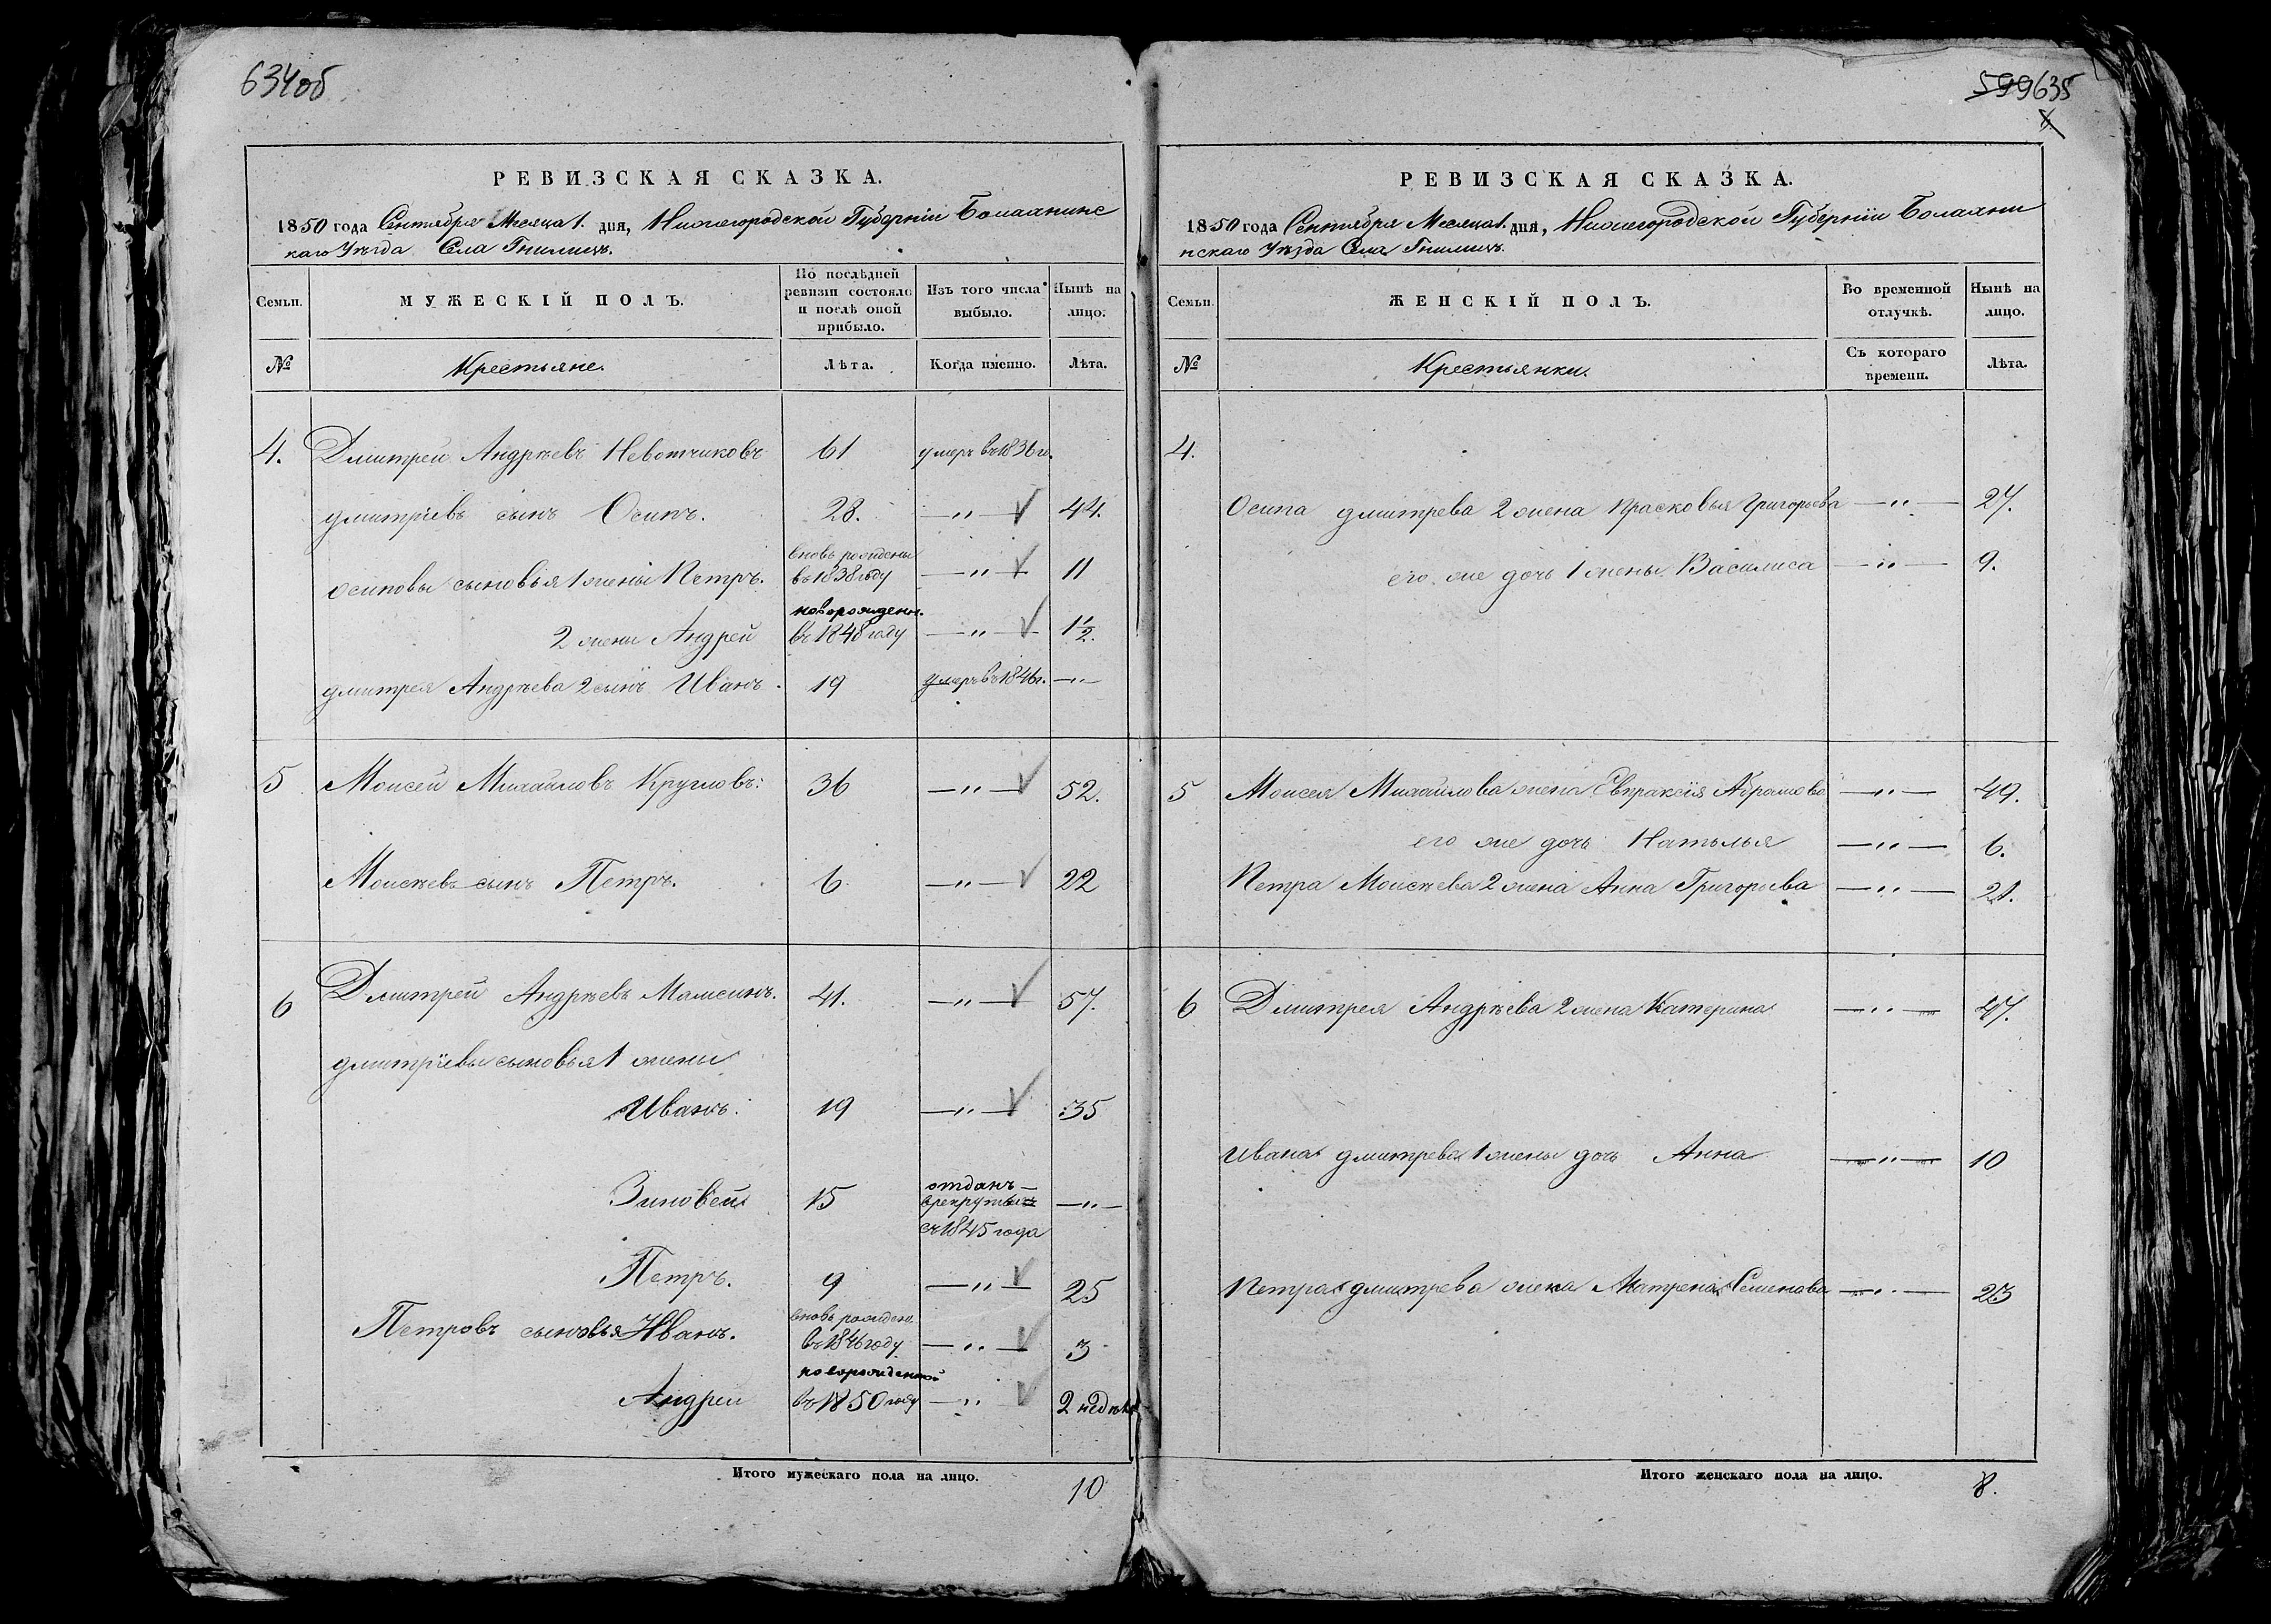 634об
РЕВИЗСКАЯ СКАЗКА.
1850 года Сентября Месяца 1. дня, Нижегородской Губерніи Балахнинс
каго Уѣзда Села Гнилицъ.
Семьи.
МУЖЕСКІЙ ПОЛЪ.
По послѣдней ревизіи состояло и послѣ оной прибыло.
Изъ того числа выбыло.
Нынѣ на лицо.
№
Крестьяне.
Лѣта.
Когда именно.
Лѣта.
4. Дмитрей Андрѣевъ 61 умеръ въ 1836 го.
дмитріевъ сынъ Осипъ. 28. —"— 44.
осиповы сыновья 1 жены Петръ. вновь рожденъ въ 1838 году —"— 11
2 жены Андрей новорожденъ въ 1848 году —"— 1 1/2.
дмитрея Андрѣева 2 сынъ Иванъ. 19 умеръ въ 1846 г. —"—
5 Моисей Михайловъ Кругловъ. 36 —"— 52.
Моисѣевъ сынъ Петръ. 6. —"— 22
6 Дмитрей Андрѣевъ 41. —"— 57.
дмитріевы сыновья 1 жены
Иванъ. 19 —"— 35
Зиновей 15 отданъ въ рекруты съ 1845 года —"—
Петръ. 9 —"— 25
Петровъ сыновья Иванъ. вновь рожден. въ 1846 году —"— 3
Андрей новорожденной въ 1850 году —"— 2 недѣли
Итого мужескаго пола на лицо. 10
599 635
8
РЕВИЗСКАЯ СКАЗКА.
1850 года Сентября Месяца 1. дня, Нижегородской Губерніи Балахни
нскаго Уѣзда Села Гнилицъ.
Семьи.
ЖЕНСКІЙ ПОЛЪ.
Во временной отлучкѣ.
Нынѣ на лицо.
№
Крестьянки.
Съ котораго времени.
Лѣта.
4.
Осипа дмитрева 2 жена Прасковья Григорьева —"— 27.
его же дочь 1 жены Василиса —"— 9.
5 Моисея Михайлова жена Евпраксія Абрамова —"— 49.
его же дочь Наталья —"— 6.
Петра Моисѣева 2 жена Анна Григорьева —"— 21.
6 Дмитрея Андрѣева 2 жена Катерина —"— 47.
Ивана дмитрева 1 жены дочь Анна —"— 10
Петра дмитрева жена Матрена Семенова —"— 23
Итого женскаго пола на лицо. 8.